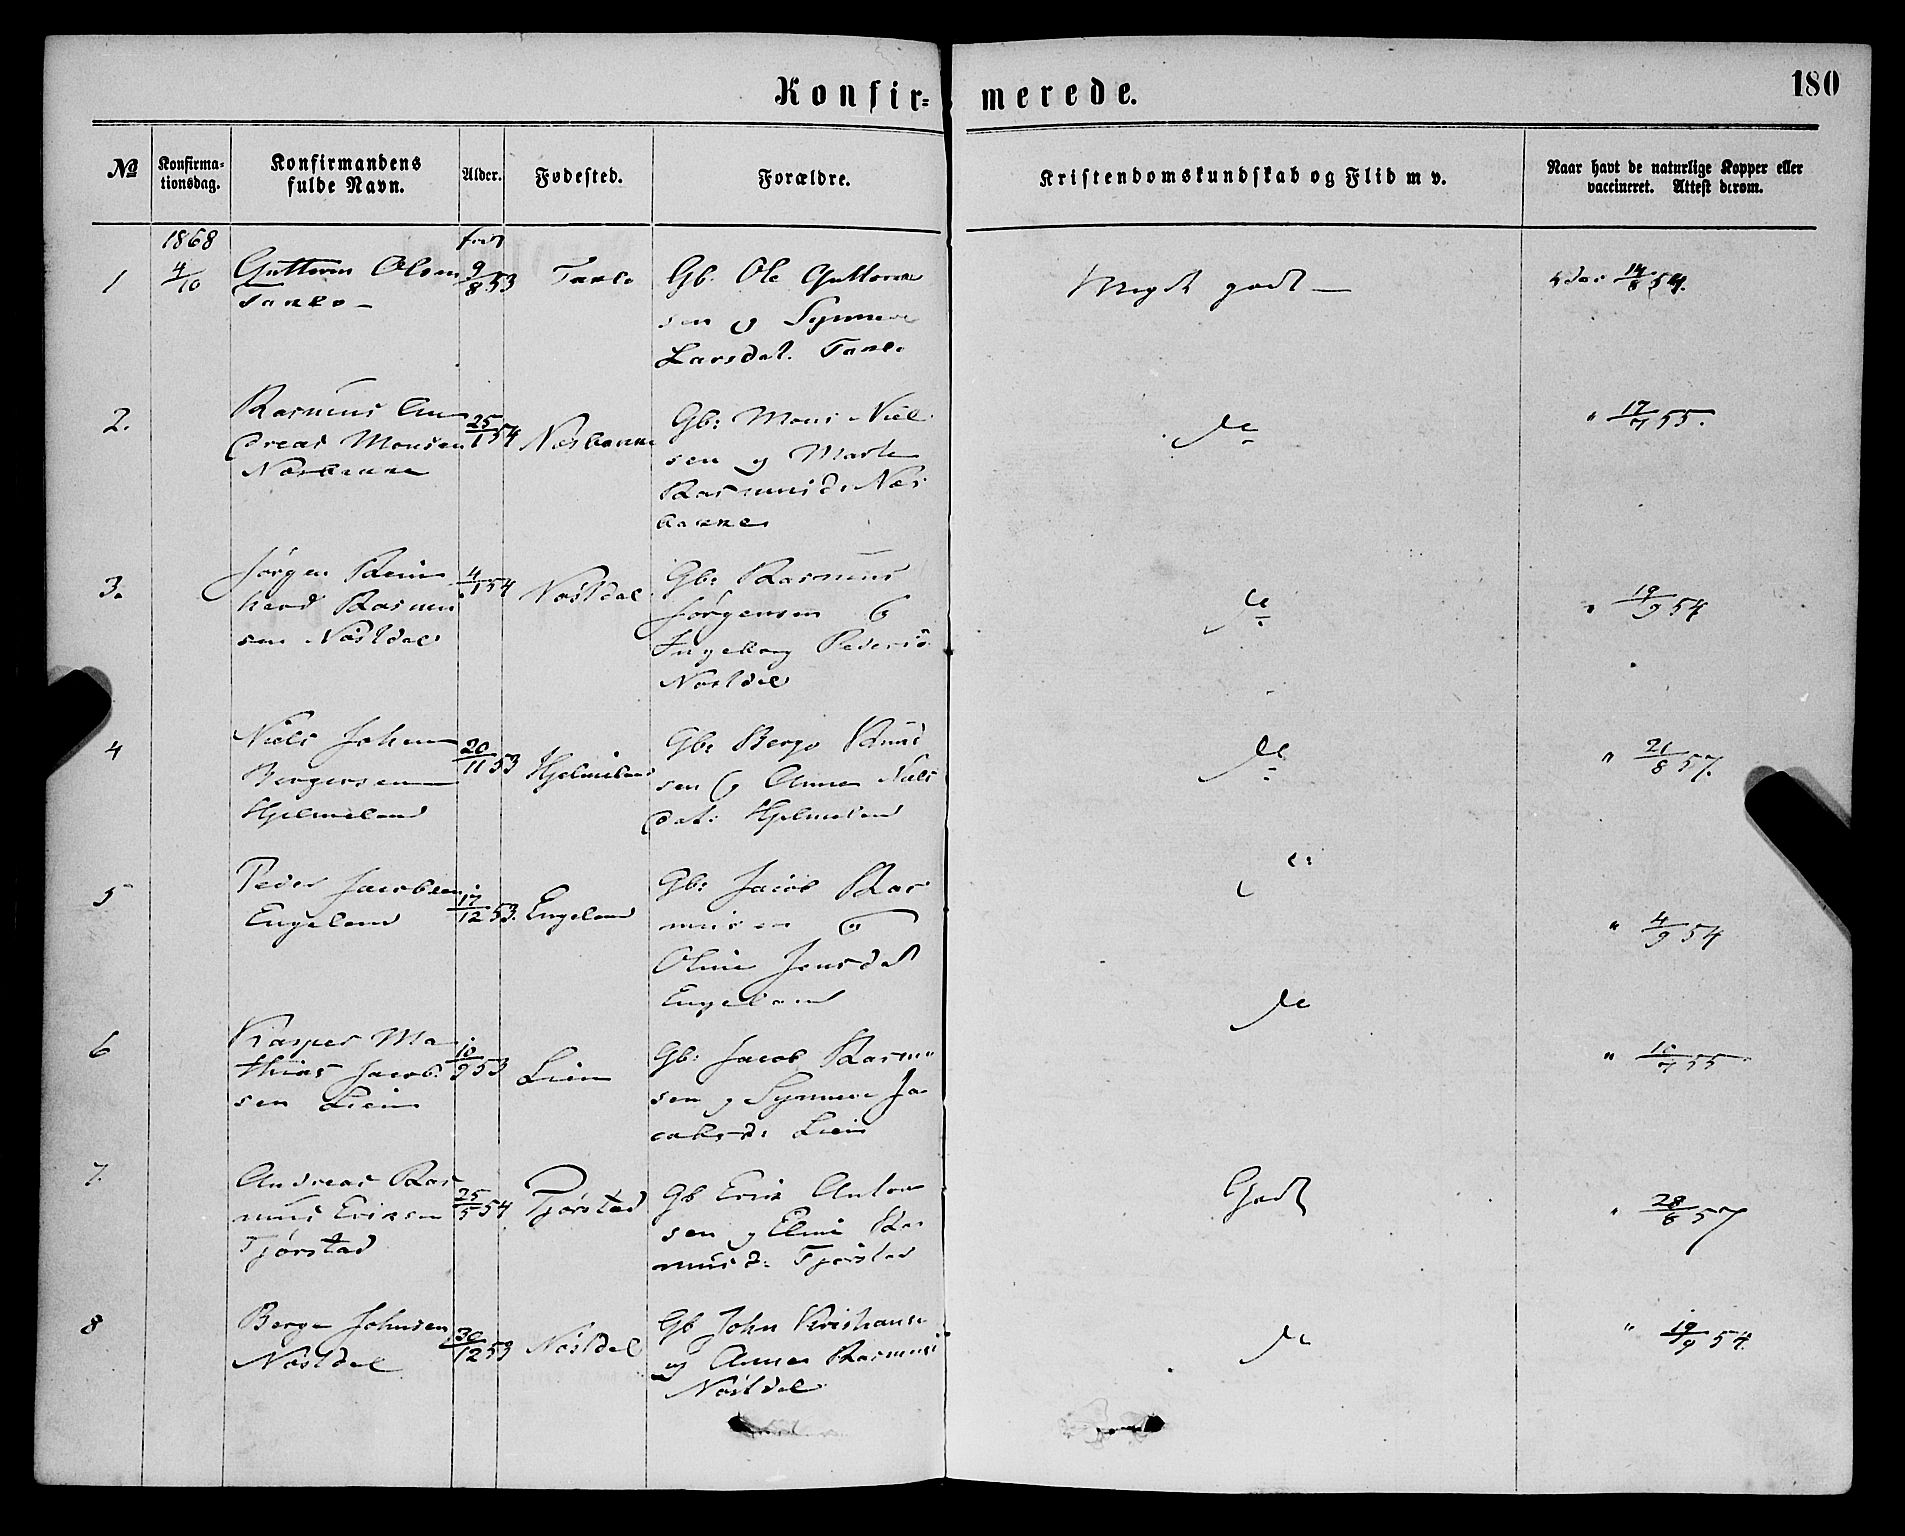 Konfir- merede.
180
No
Konfirma-
tionsdag.
Konfirmandens
fulde Navn.
Alder.
Fødested.
Forældre.
Kristendomskundskab og Flid m v.
Naar havt de naturlige Kopper eller
vaccineret. Attest derom.
1868
født
1
4/10
Guttorm Olsen
9/8 53
Gb. Ole Guttorm
sen og Synneve
Larsdat.
Meget godt -
14/8 54.
2.
Rasmus An
dreas Monsen
Nesbakke
25/1 54
Nesbakke
Gb: Mons Niel
sen og Marte
Rasmusd. Nes
bakke
do
" 17/7 55.
3.
Jørgen Rein
hard Rasmus
sen Nøstdal
4/1 54
Nøstdal
Gb: Rasmus
Jørgensen &
Ingeborg Pedersd.
Nøstdal
do
" 19/9 54
4
Niels Johan
Bergersen
Hjelmeland
20/11 53
Hjelmeland
Gb: Berge Knud
sen og Anna Niels
dat: Hjelmeland
do
" 21/8 57.
5
Peder Jacobsen
Engeland
17/12 53.
Engeland
Gb: Jacob Ras
musen &
Oline Jensdat
Engeland
do
" 4/9 54
6
Kasper Ma
thias Jacob
sen Lien
10/9 53
Lien
Gb: Jacob Rasmu
sen og Synneve Ja
cobsd: Lien
do
" 55
7.
Andreas Ras
mus Eriksen
Tjørstad
25/5 54
Tjørstad
Gb Erik Anton
sen og Elina Ras
musd: Tjørstad
Godt
" 28/8 57
8
Berge Johnsen
Nøstdal
30/12 53
Nøstdal
Gb John Kristians
og Anna Rasmusd
Nøstdal
do
" 19/9 54.